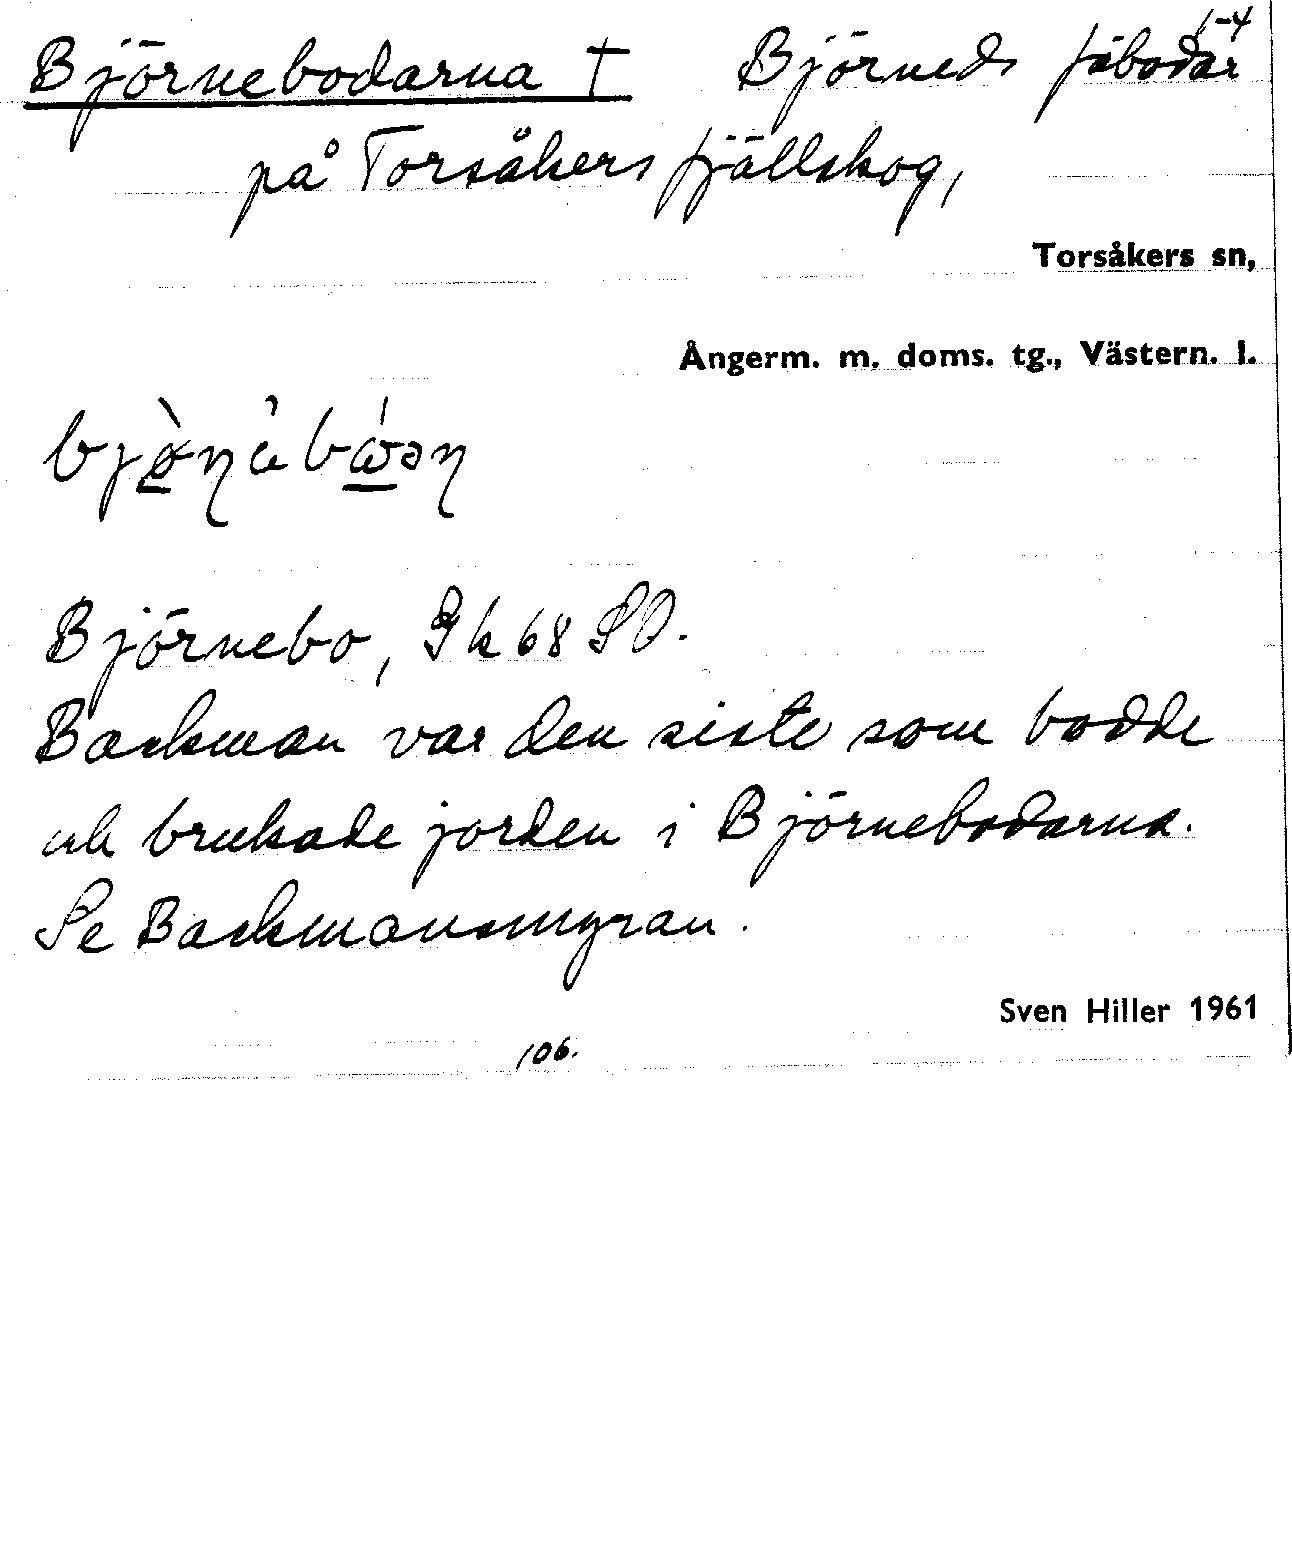 Björnebodarna † Björneds fäbodar 1-4
på Torsåkers fjällskog,
Torsåkers sn,
Ångerm. m. doms. tg., Västern. l.
Björnebo, Gk 68 SO.
Backman var den siste som bodde
och brukade jorden i Björnebodarna.
Se Backmansmyran.
Sven Hiller 1961
106.